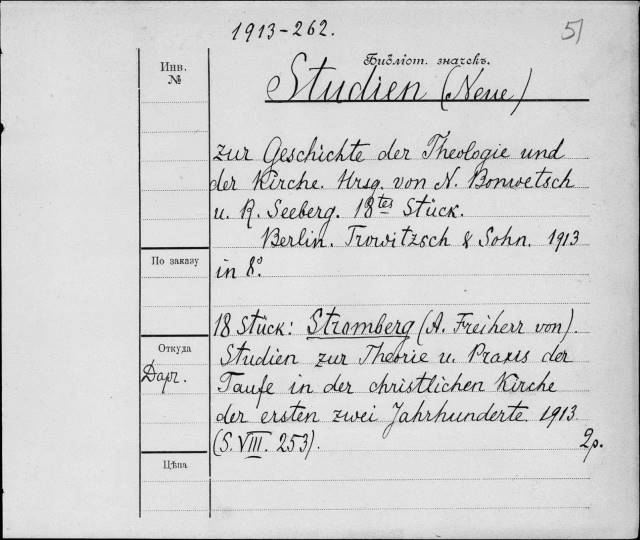 1913-262.
51
Библіот. значекъ.
Инв.
№
Studien (Neue)
zur Geschichte der Theologie und
der Kirche. Hrsg. von N. Bonwetsch
u. R. Seeberg. 18tes Stück.
Berlin. Trowitzsch & Sohn. 1913
По заказу
in 8°.
18 Stück: Stromberg (A. Freiherr von).
Откуда
Studien zur Theorie u. Praxis der
Дар.
Taufe in der christlichen Kirche
der ersten zwei Jahrhunderte. 1913
(S. VIII. 253).
2р.
Цѣна